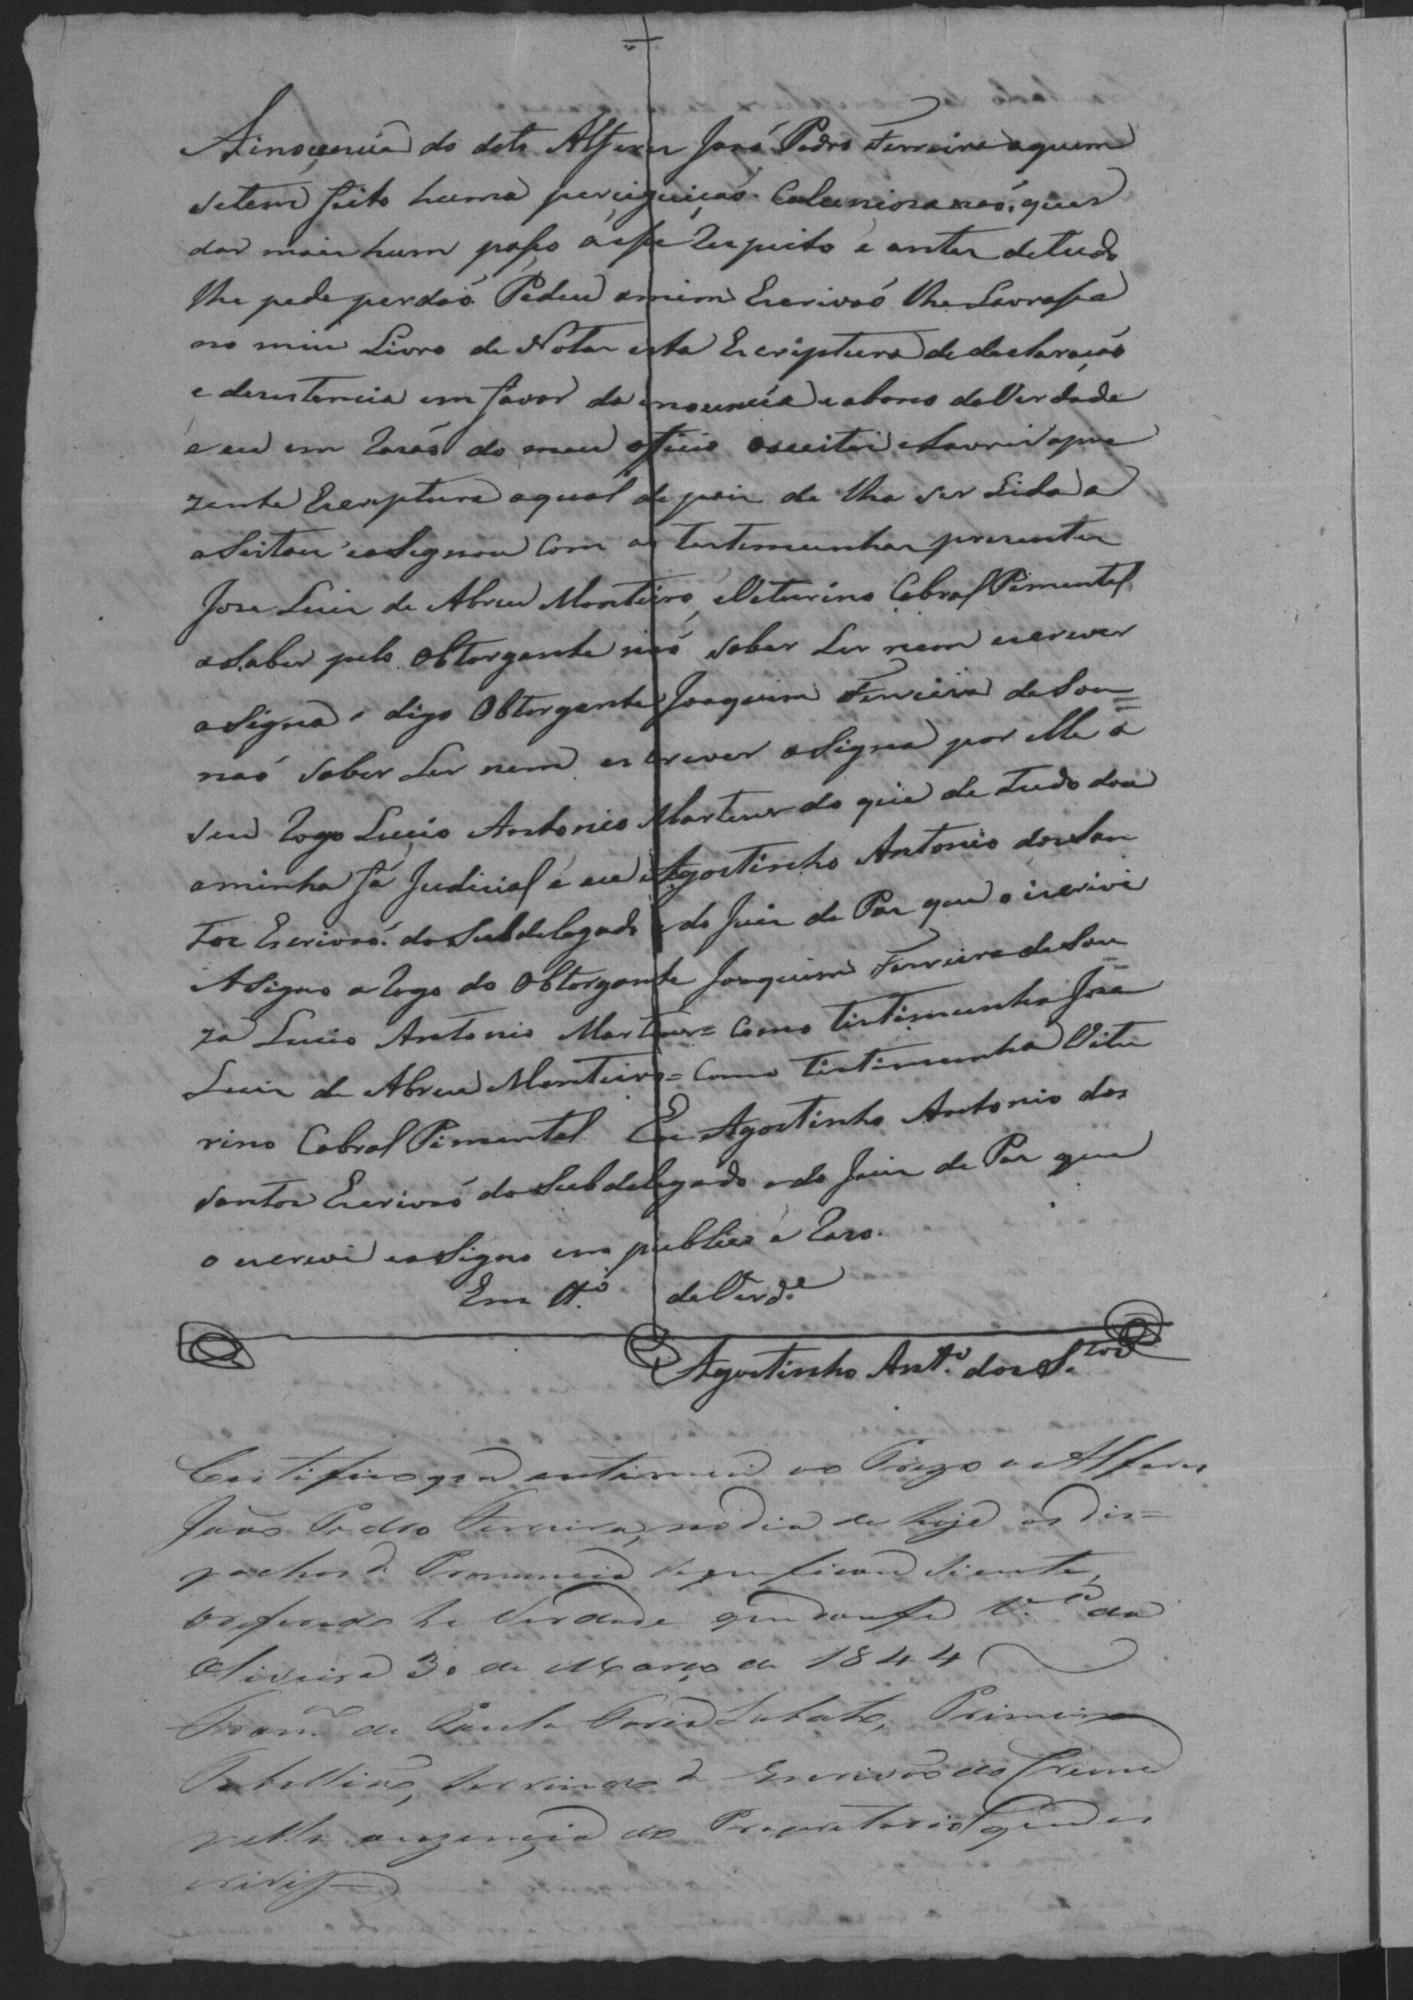 Ainocencia do dito Alferes João Pedro Ferreira aquem
setem feito huma perciguicaó Caluniosa naó quer
dar mais hum paso á esse Respeito e antes detudo
lhe pede perdaó. Pedeu amim Escrivaó lhe Lavrasse
no meu Livro de Notas esta Escriptura de declaracaó
e desistencia em favor da inocencia e abono da Verdade
e eu em Razaó do meu oficio aceitei e Lavrei apre
zente Escriptura aqual depois de lhe ser Lida a
aseitou e asignou Com as testemunhas presentes
Jose Luis de Abreu Monteiro, e Veturino Cabral Pimentel
asaber pelo Obtorgante naó saber Ler nem escrever
asigna digo Obtorgante Joaquim Ferreira de Sou=
naó saber Ler nem escrever asigna por elle a
seu Rogo Lucio Antonio Martens do que de tudo dou
aminha fé Judicial e eu Agostinho Antonio dos San
tos Escrivaó do Subdelegado e do Juis de Pas que o iscrivi
Asigno a Rogo do Obtorgante Joaquim Ferreira de Sou
za Lucio Antonio Martens= Como tistimunha Joze
Luis de Abreu Monteiro= Como tistimunha Vitu
rino Cabral Pimentel. Eu Agostinho Antonio dos
Santos Escrivaó do Subdelegado e do Juis de Pas que
o escrevi e asigno em publico e Razo.
Em tt.o de Verd.e
Agostinho Ant.o dos S.tos
Certifico que entimei ao Prezo o Alferes
João Pedro Ferreira, no dia de hoje os des=
pachos de Pronuncia de que ficou siente,
oreferido he Verdade que dou fé V.a da
Oliveira 30 de Março de 1844
Fran.co de Paula Faria Lobato, Primeiro
Tabelliaõ, servindo de Escrivaõ do Crime
pella auzencia do Propietario que o es
crivi